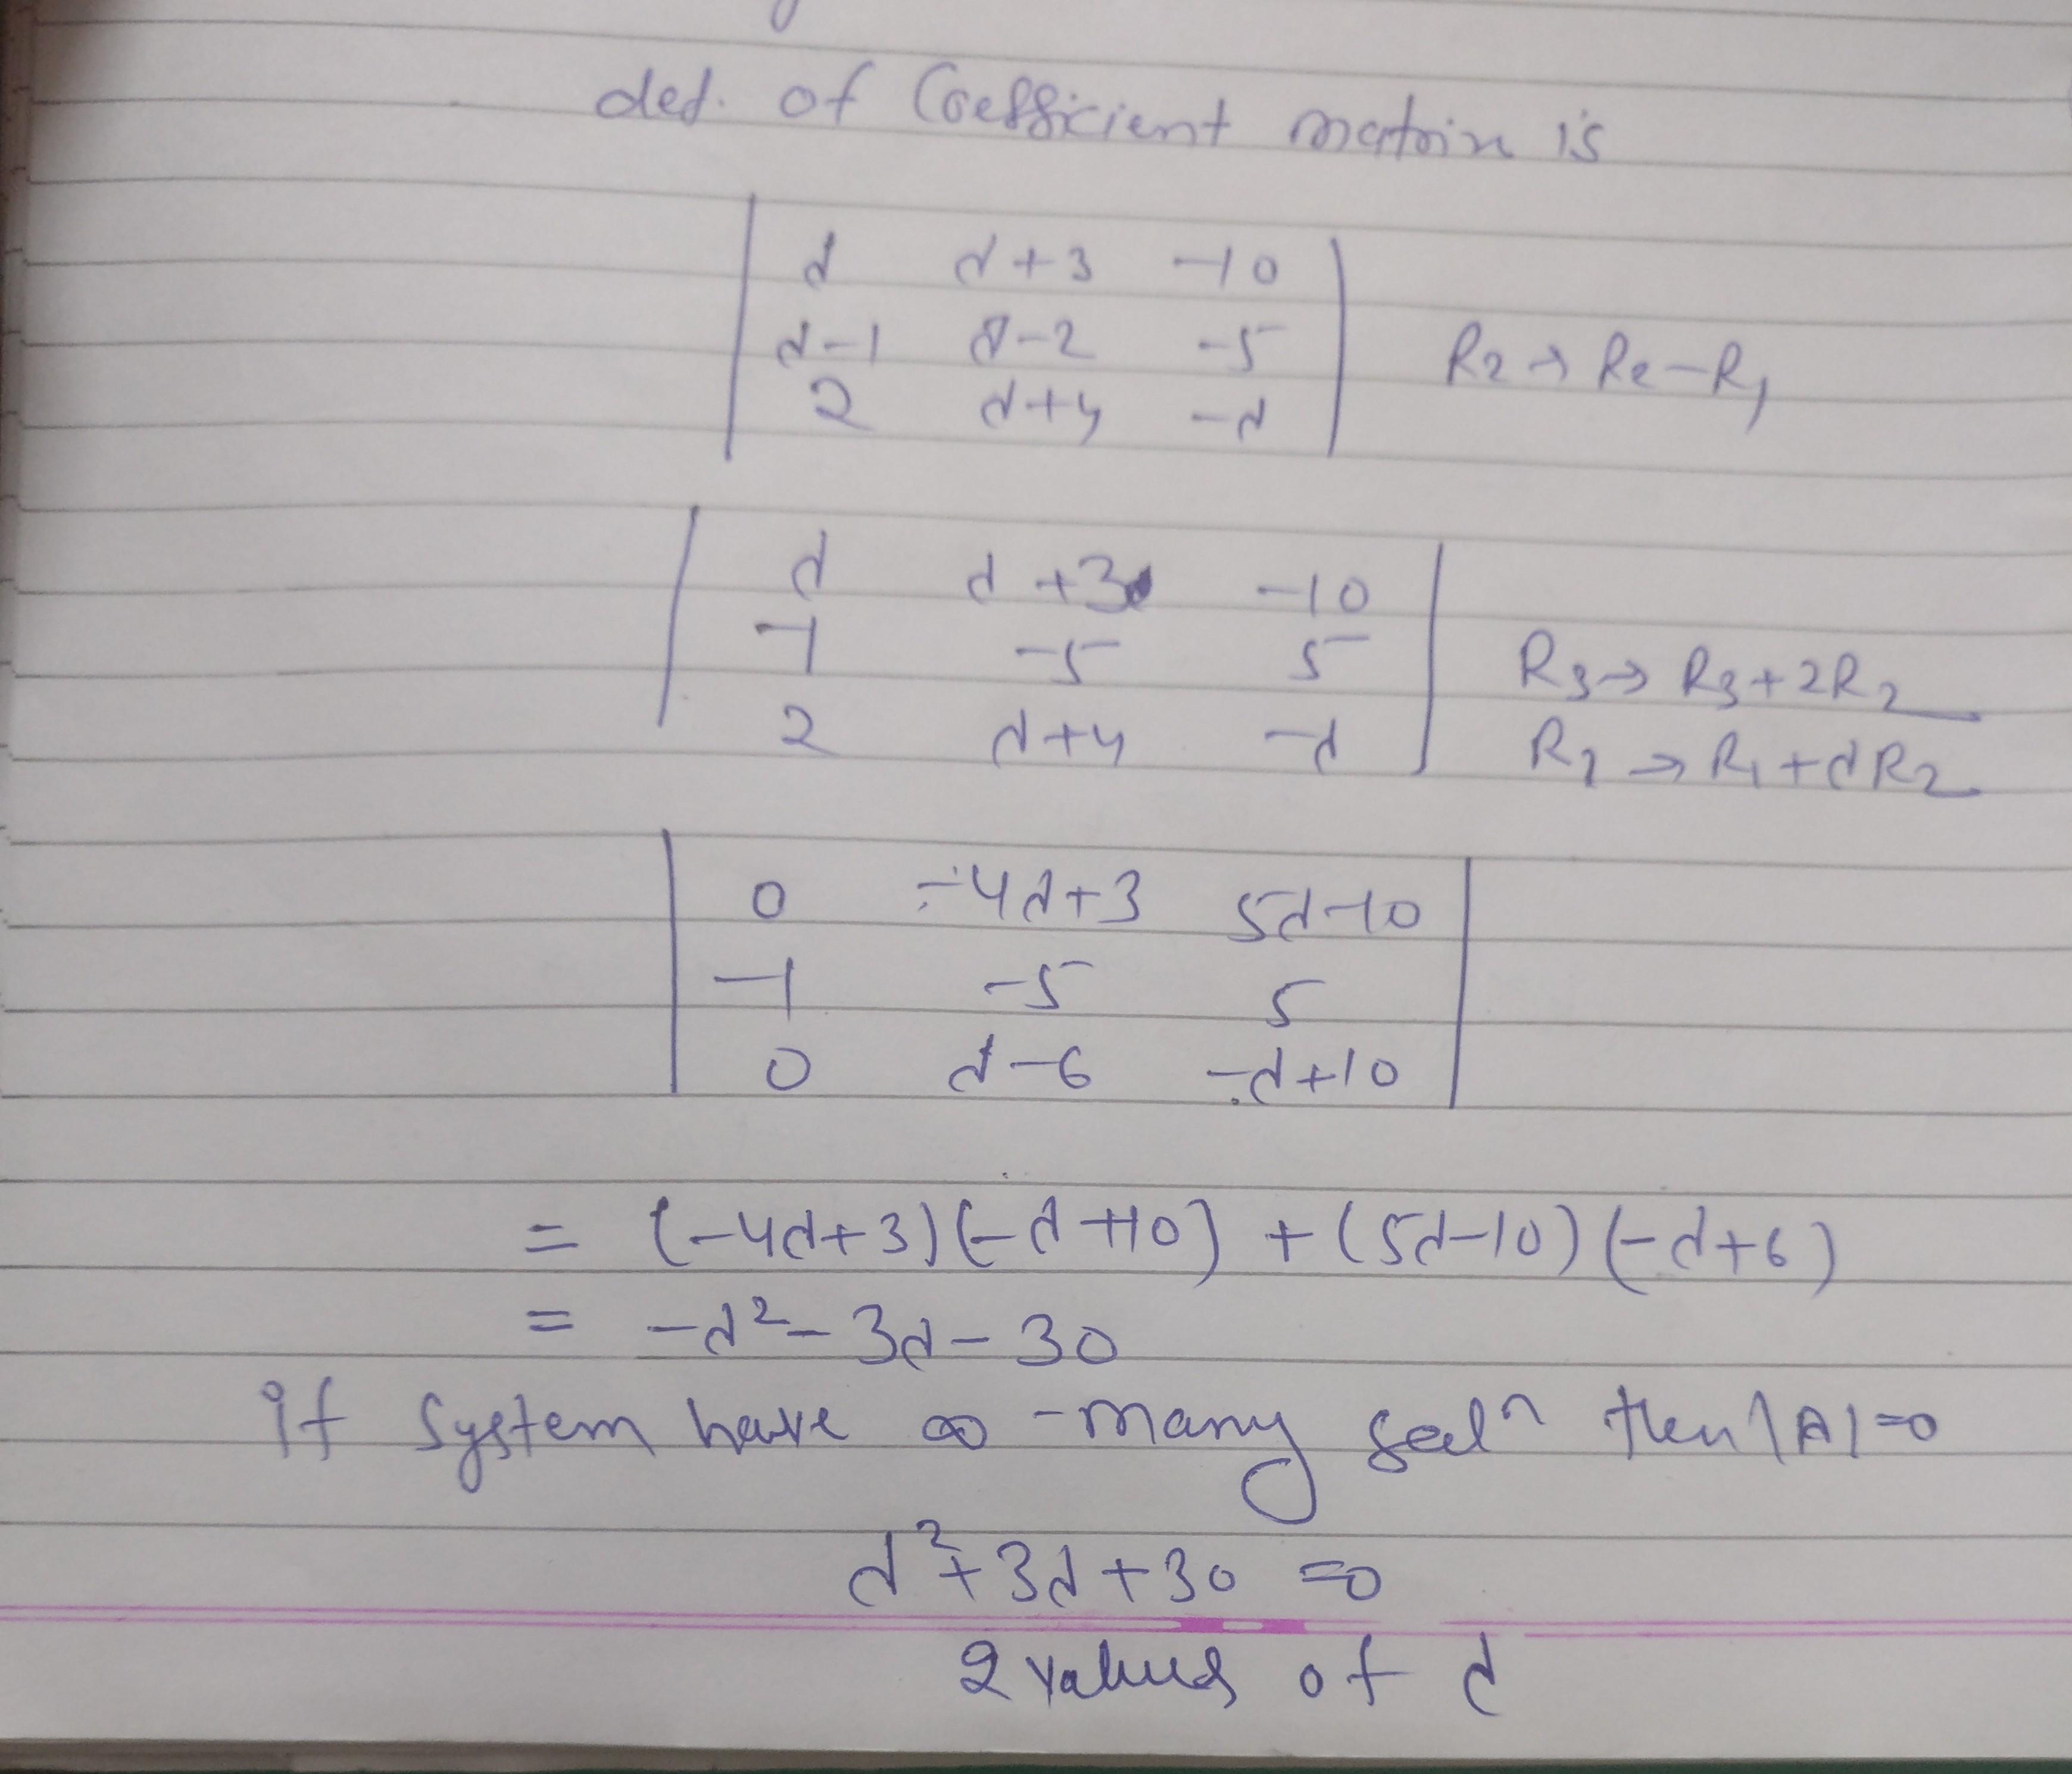 det. of Coefficient matrix is
| d d+3 -10 |
| d-1 d-2 -5 | R2 → R2-R1
| 2 d+4 -d |
| d d+3 -10 |
| -1 -5 5 | R3 → R3+2R2
| 2 d+4 -d | R1 → R1+dR2
| 0 -4d+3 5d-10 |
| -1 -5 5 |
| 0 d-6 -d+10 |
= (-4d+3)(-d+10) + (5d-10)(-d+6)
= -d²-3d-30
if System have ∞-many solⁿ then |A|=0
d²+3d+30=0
2 values of d